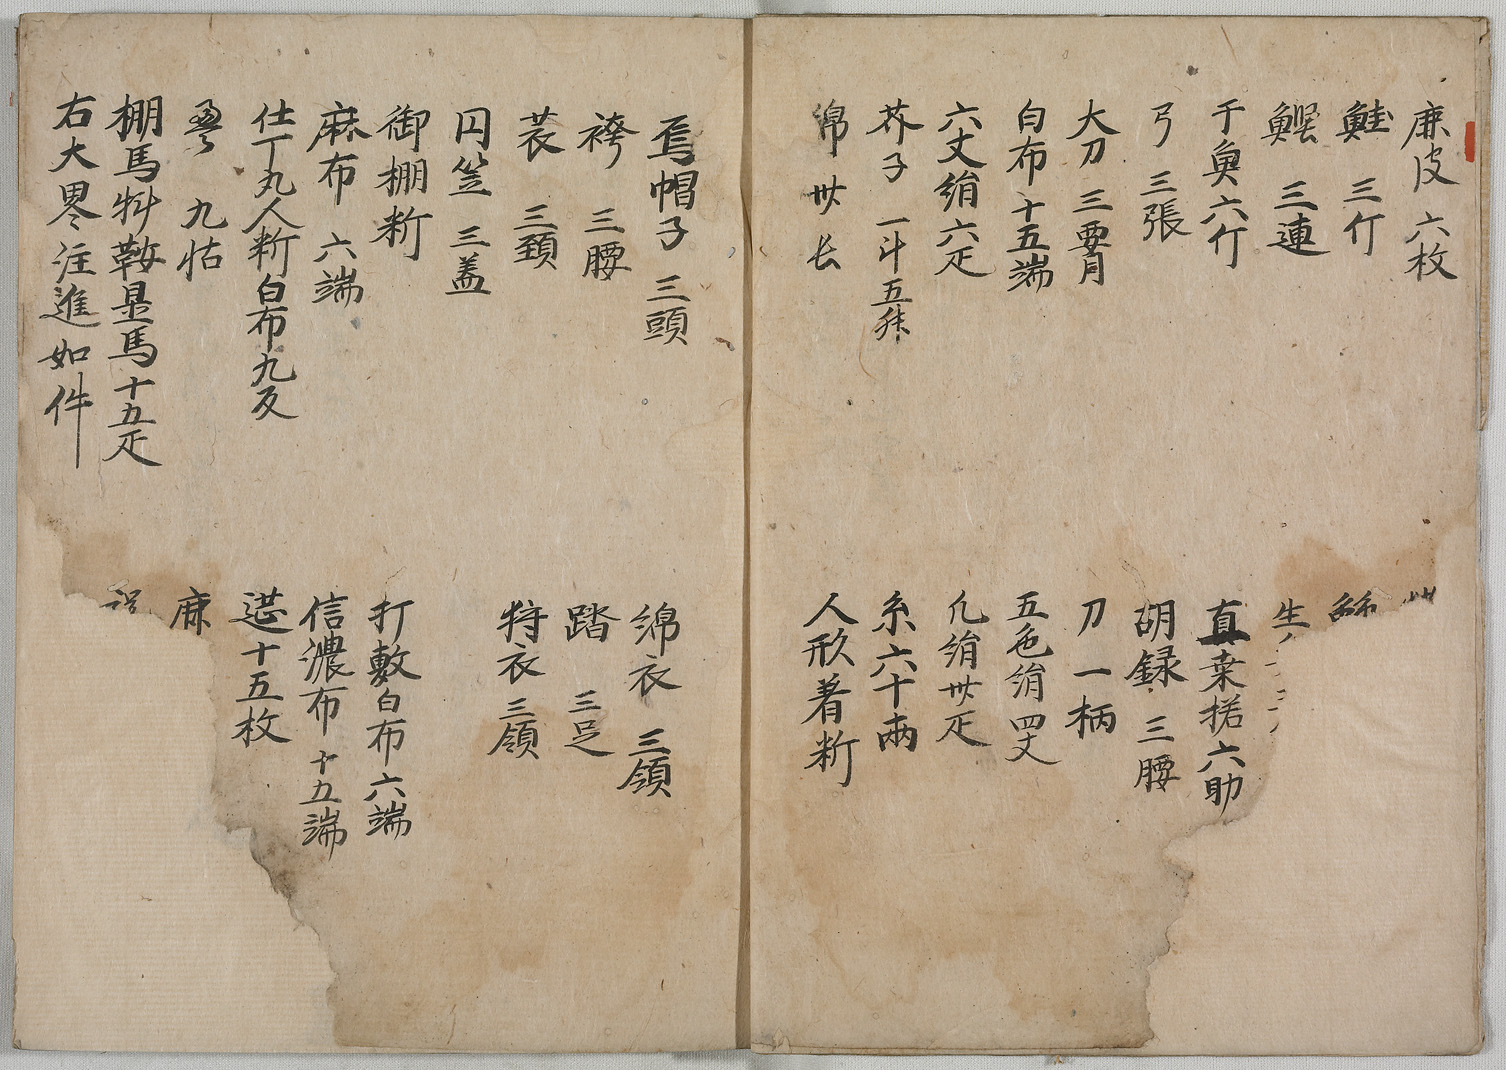 鹿皮 六枚
鮭 三仃
鰹 三連 生
干魚六仃 真桑捃六助
弓 三張 胡録 三腰
大刀 三腰 刀 一柄
白布十五端 五色絹四丈
六丈絹六疋 凡絹卅疋
芥子 一斗五舛 糸六十両
綿 卅 长 人形着断
烏帽子 三頭 綿衣 三領
袴 三腰 踏 三足
蓑 三頚 狩衣 三領
円笠 三盖
御棚断 打敷白布六端
麻布 六端 信濃布 十五端
仕丁九人断白布九反 莚十五枚
九怙 麻
棚馬料鞍置馬十五疋
右大畧注進如件